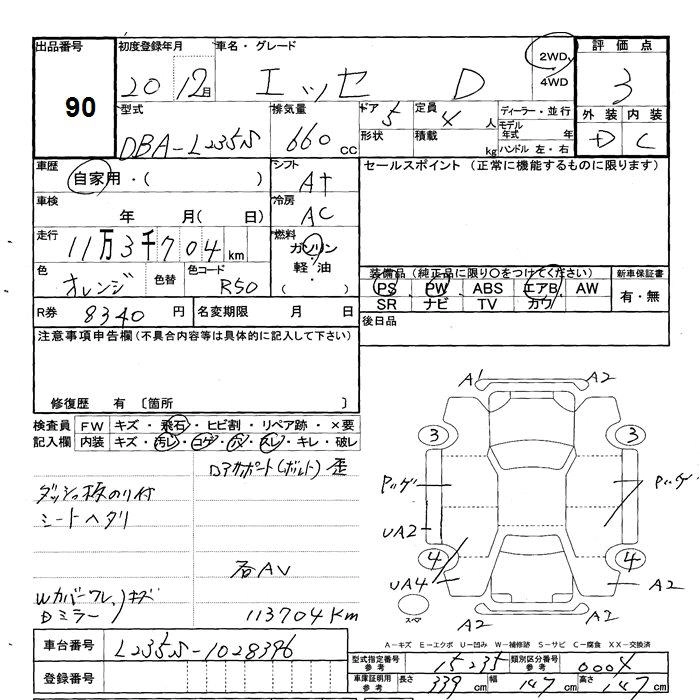 出品番号 初度登録年月 車名・グレード 2WD 評価点
90 20 12月 エッセ D 4WD 3
型式 排気量 ドア 定員 ディーラー・並行 外装 内装
DBA-L235S 660 CC 5 4 人 モデル年式 年 D C
形状 積載 kg ハンドル 左・右
車歴 シフト セールスポイント (正常に機能するものに限ります)
自家用・( ) AT
車検 冷房
年 月( 日) AC
走行 燃料
11万3千704 km ガソリン
軽・油
・( )
色 色替 色コード
オレンジ R50
装備品 (純正品に限り○をつけてください) 新車保証書
PS PW ABS エアB AW 有・無
SR ナビ TV カワ
R券 8340 円 名変期限 月 日
後日品
注意事項申告欄(不具合内容等は具体的に記入して下さい)
修復歴 有 〔箇所 〕
検査員 FW キズ・飛石・ヒビ割・リペア跡・×要
記入欄 内装 キズ・汚レ・コゲ・穴・スレ・キレ・破レ
歪
ダッシュ板のり付
シートヘタリ
AV
Wカバーワレ,キズ
Dミラー
113704Km
A1 A2
3 3
UA2
4 4
UA4 A2
スペア
A2 A2
A-キズ E-エクボ U-凹み W-補修跡 S-サビ C-腐食 XX-交換済
車台番号 L235S-1028396
登録番号
型式指定番号 参考 15235 類別区分番号 参考 0004
車庫証明用 参考 長さ 339 cm 幅 147 cm 高さ 147 cm